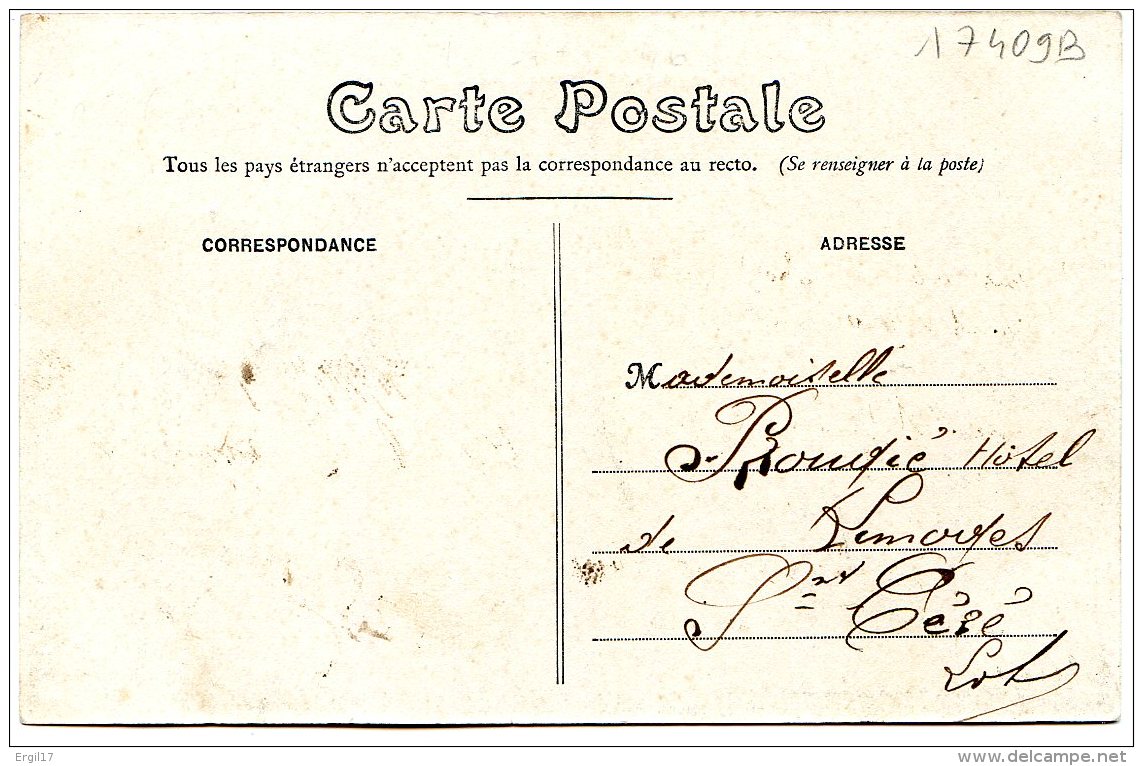 17409B
Carte Postale
Tous les pays étrangers n'acceptent pas la correspondance au recto. (Se renseigner à la poste)
CORRESPONDANCE
ADRESSE
Mademoiselle
Rougié Hôtel
de Limoges
St Céré
Lot
Ergil17
www.delcampe.net